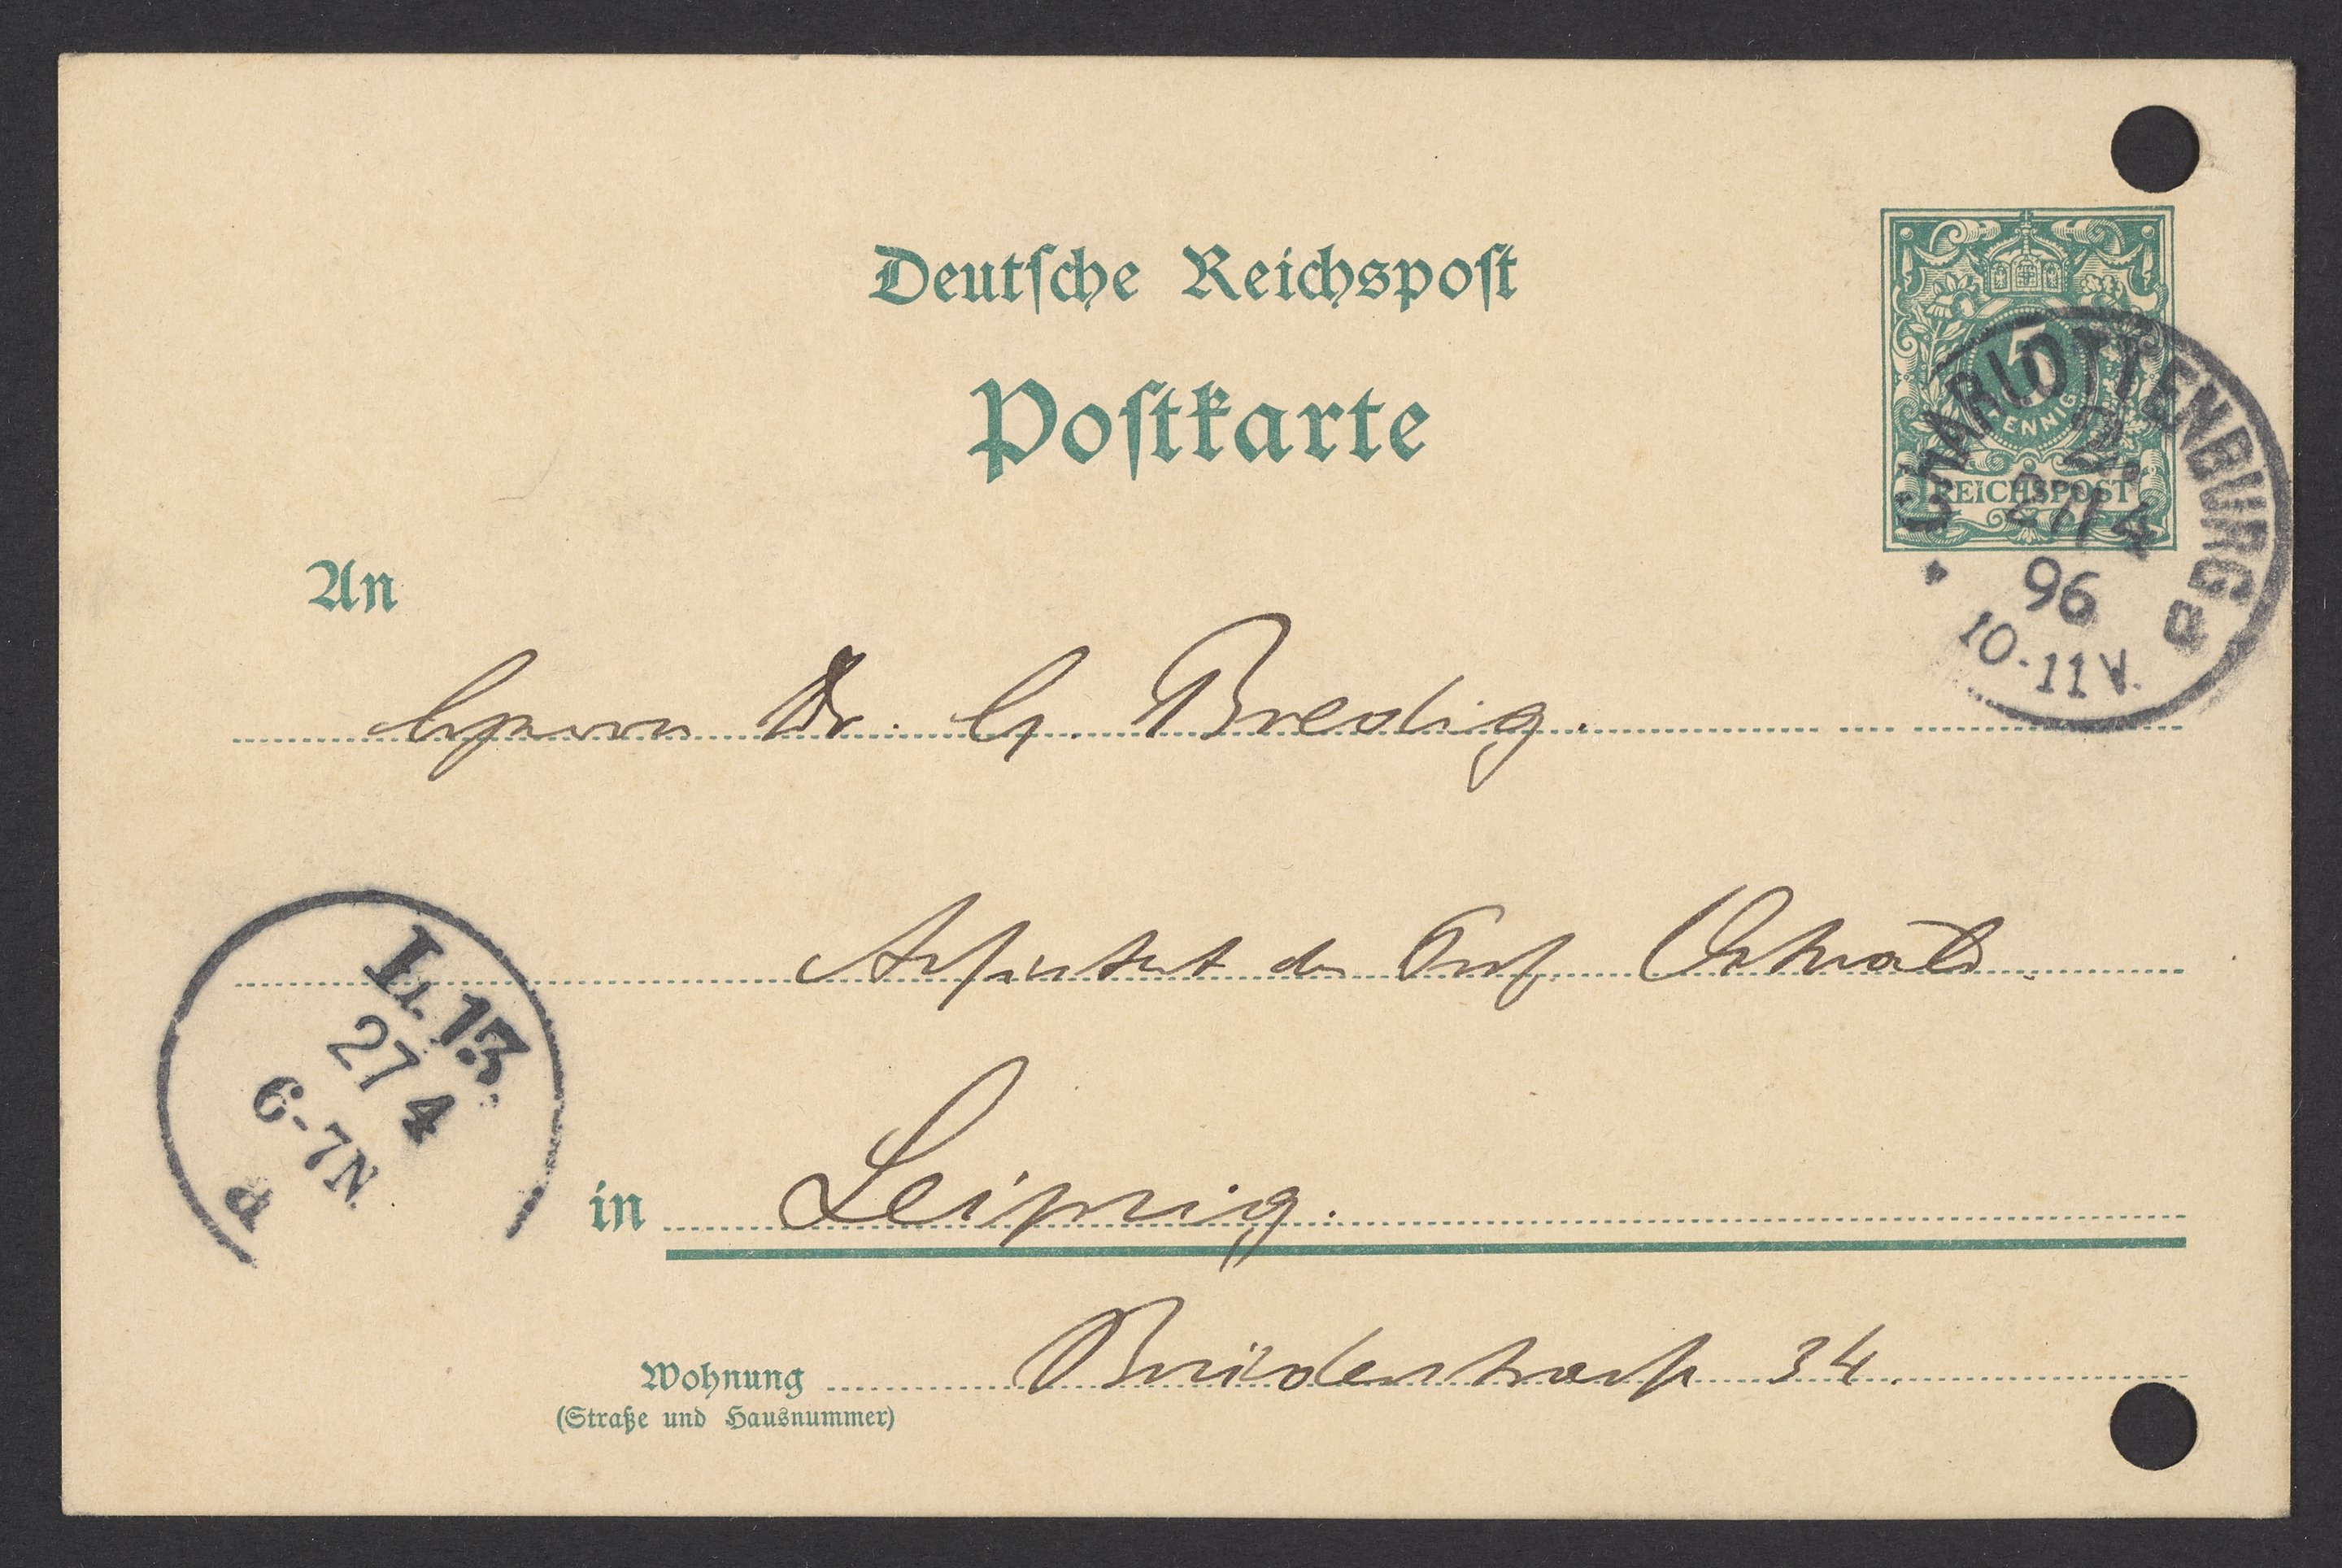 Deutsche Reichspost
Postkarte
5
PFENNIG
REICHSPOST
CHARLOTTENBURG
2.
27/4
96
10-11V.
a
An
Herrn Dr. G. Bredig.
Assistent des Prof. Ostwald.
L. 13.
27 4
6-7N.
a
in Leipzig.
Wohnung Brüderstrasse 34.
(Straße und Hausnummer)